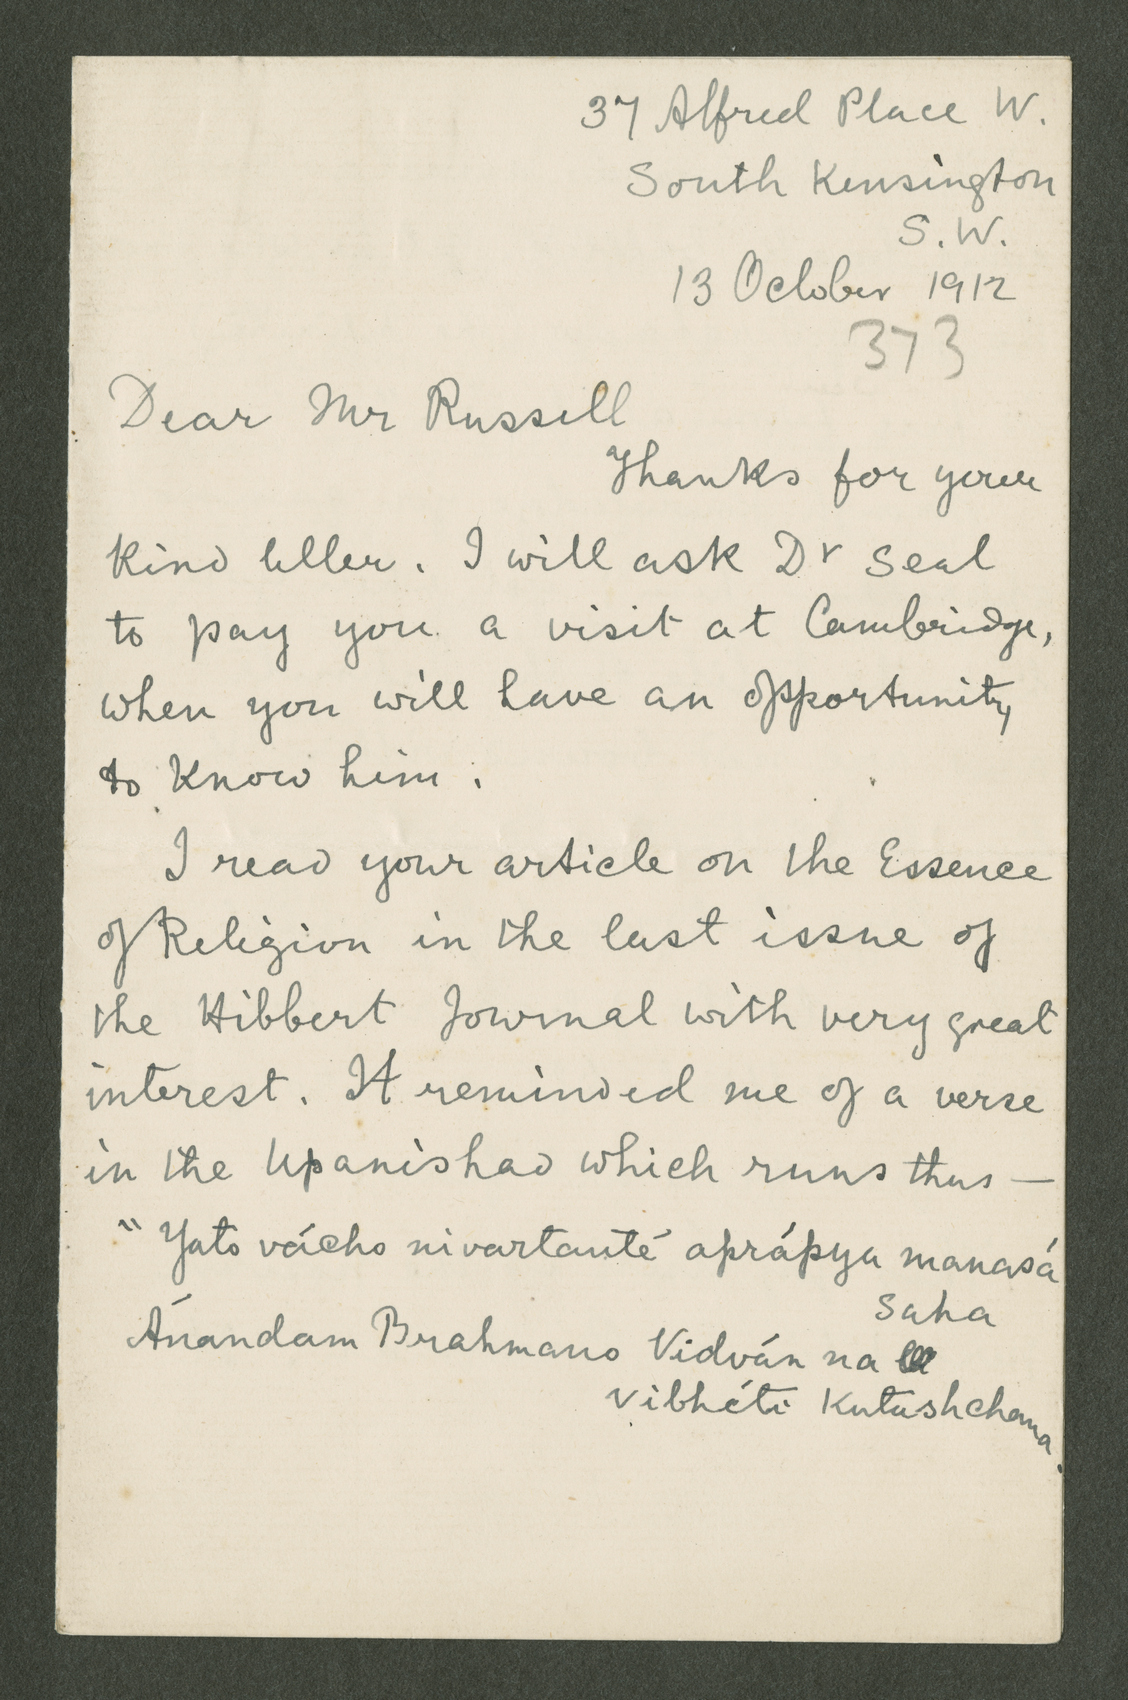 37 Alfred Place W.
South Kensington
S.W.
13 October 1912
373
Dear Mr Russell
Thanks for your
kind letter. I will ask Dr Seal
to pay you a visit at Cambridge,
when you will have an opportunity
to know him.
I read your article on the Essence
of Religion in the last issue of
the Hibbert Journal with very great
interest. It reminded me of a verse
in the Upanishad which runs thus —
"Yato vácho nivartanté aprápya manasá
saha
Ánandam Brahmano Vidván na
vibhéti Kutashchana.